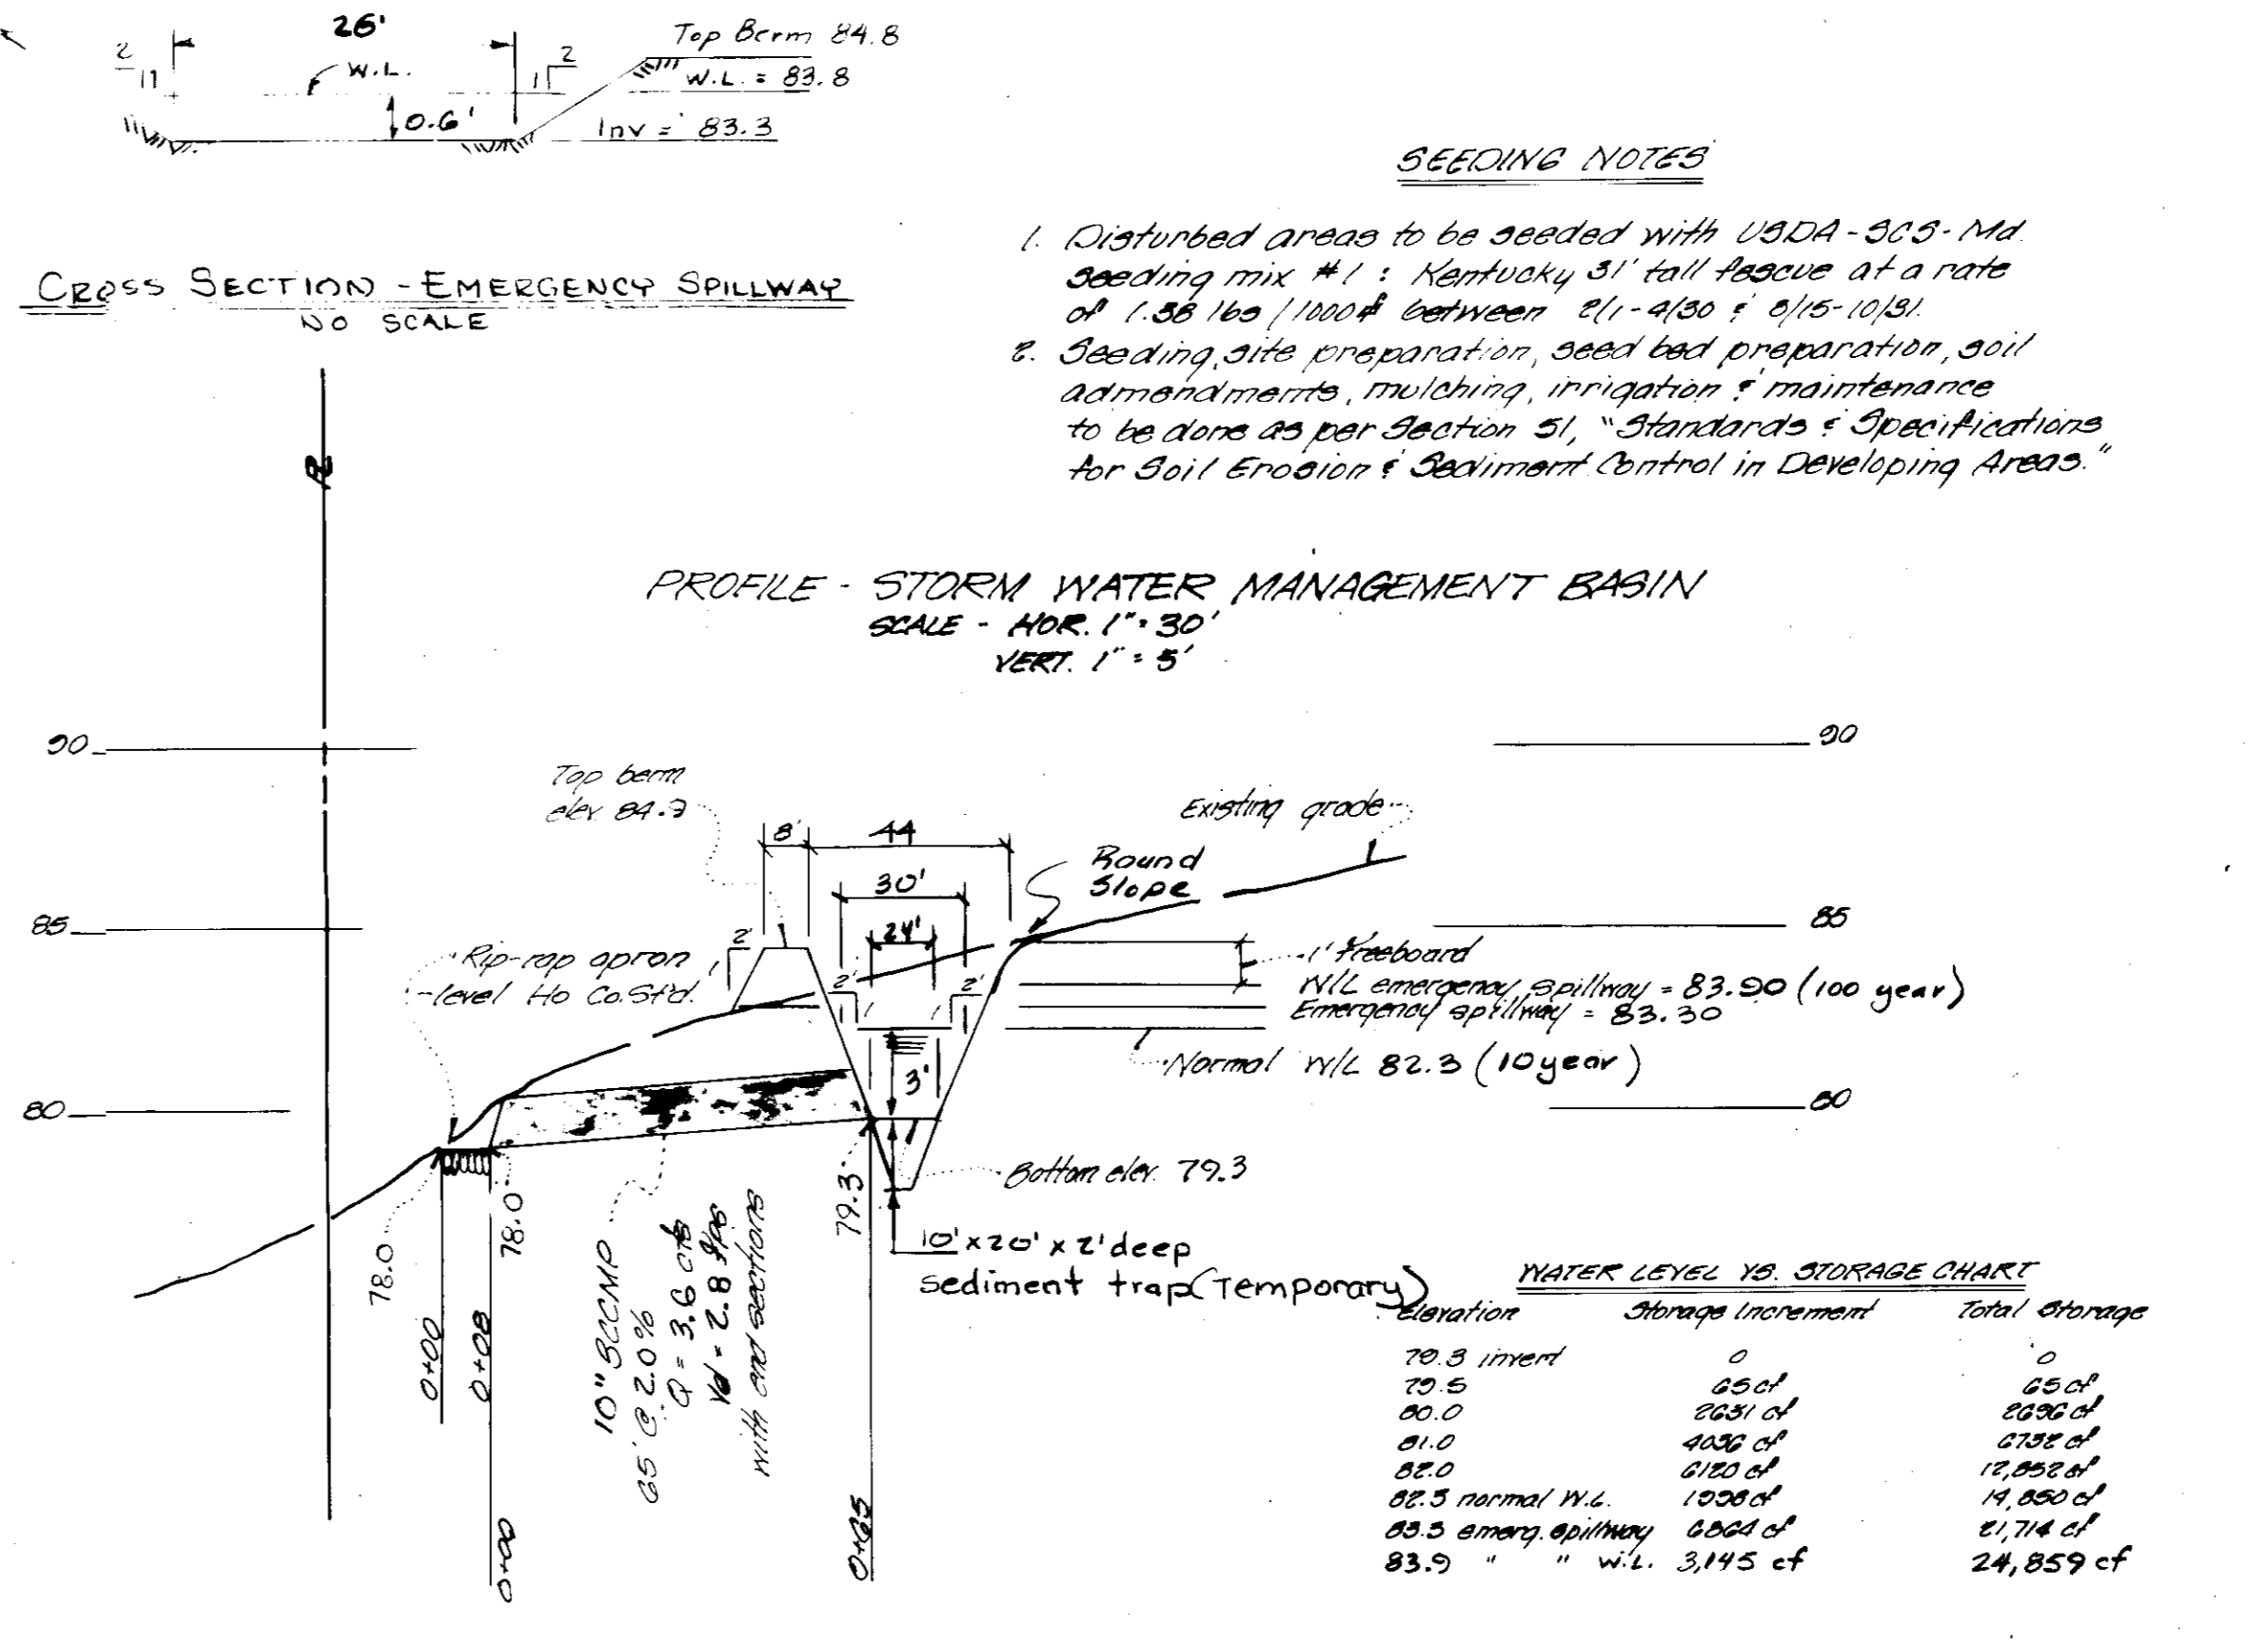 26'
2
1
W.L.
1
2
Top Berm 84.8
W.L. = 83.8
0.6'
Inv = 83.3
CROSS SECTION - EMERGENCY SPILLWAY
NO SCALE
SEEDING NOTES
1. Disturbed areas to be seeded with USDA-SCS-Md.
seeding mix #1 : Kentucky 31' tall fescue at a rate
of 1.38 lbs / 1000 between 2/1-4/30 & 8/15-10/31.
2. Seeding, site preparation, seed bed preparation, soil
admendments, mulching, irrigation & maintenance
to be done as per Section 51, "Standards & Specifications
for Soil Erosion & Sediment Control in Developing Areas."
PROFILE - STORM WATER MANAGEMENT BASIN
SCALE - HOR. 1" = 30'
VERT. 1" = 5'
90
90
Top berm
elev. 84.9
8'
44
Existing grade
Round
Slope
30'
24'
85
85
Rip-rap apron
level Ho Co. St'd.
2'
1
2'
1
1
2'
1' freeboard
W/L emergency spillway = 83.90 (100 year)
Emergency spillway = 83.30
Normal W/L 82.3 (10 year)
3'
80
80
Bottom elev. 79.3
10' x 20' x 2' deep
sediment trap (Temporary)
78.0
78.0
79.3
0+00
0+08
0+00
0+65
10" BCCMP
65' @ 2.0%
Q = 3.6 cfs
Vd = 2.8 fps
with end sections
WATER LEVEL VS. STORAGE CHART
Elevation Storage Increment Total Storage
79.3 invert 0 0
79.5 65 cf 65 cf
80.0 2631 cf 2696 cf
81.0 4036 cf 6732 cf
82.0 6120 cf 12,852 cf
82.3 normal W.L. 1998 cf 14,850 cf
83.3 emerg. spillway 6864 cf 21,714 cf
83.9 " " W.L. 3,145 cf 24,859 cf